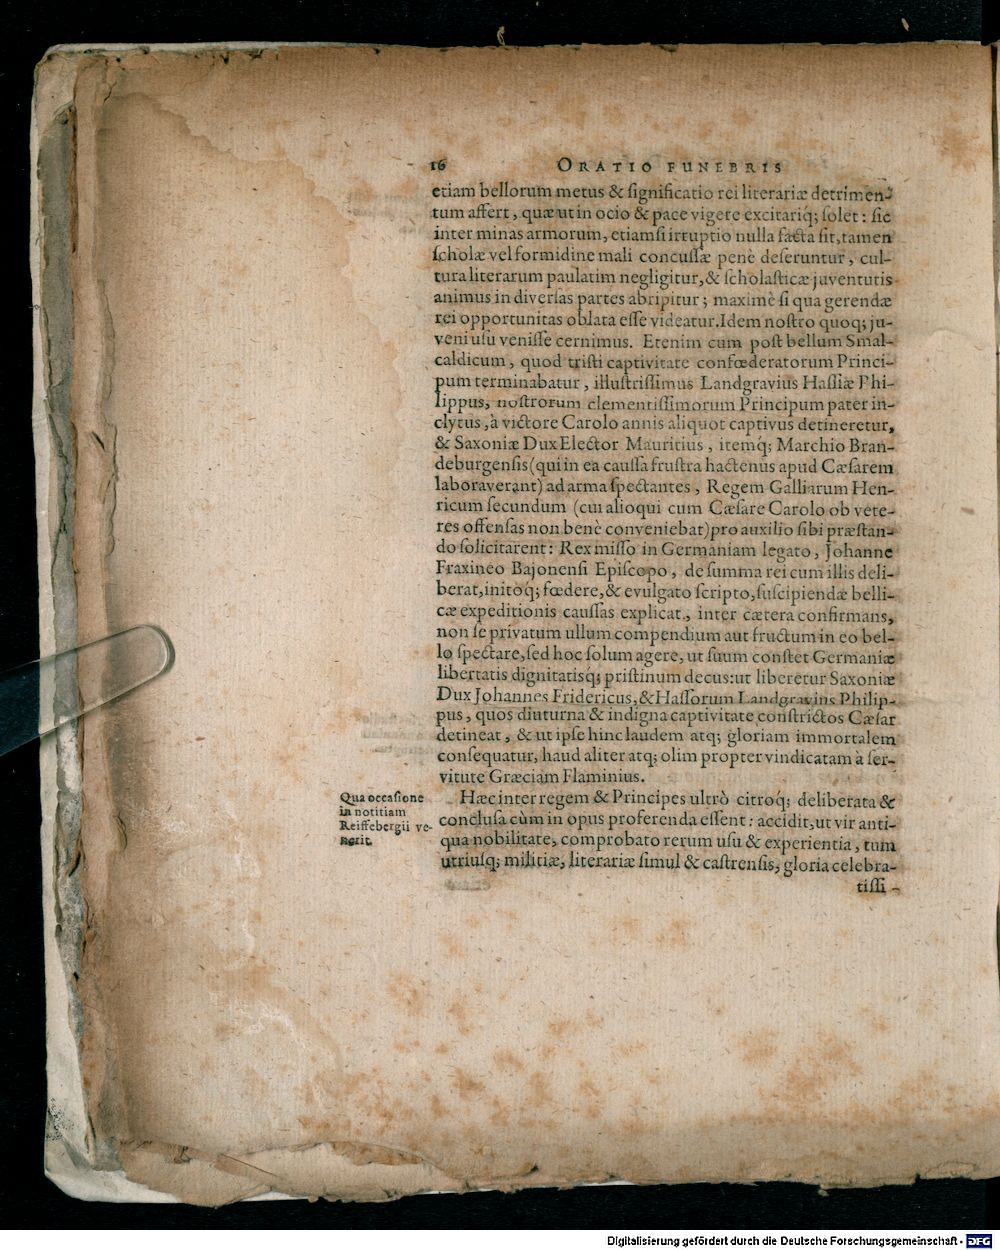 16 ORATIO FUNEBRIS
etiam bellorum metus & significatio rei literariæ detrimen-
tum affert, quæ ut in ocio & pace vigere excitariq; solet: sic
inter minas armorum, etiamsi irruptio nulla facta sit, tamen
scholæ vel formidine mali concussæ penè deseruntur, cul-
tura literarum paulatim negligitur, & scholasticæ juventutis
animus in diversas partes abripitur; maximè si qua gerendæ
rei opportunitas oblata esse videatur. Idem nostro quoq; ju-
veni usu venisse cernimus. Etenim cum post bellum Smal-
caldicum, quod tristi captivitate confœderatorum Princi-
pum terminabatur, illustrissimus Landgravius Hassiæ Phi-
lippus, nostrorum clementissimorum Principum pater in-
clytus, à victore Carolo annis aliquot captivus detineretur,
& Saxoniæ Dux Elector Mauritius, itemq; Marchio Bran-
deburgensis (qui in ea caussa frustra hactenus apud Cæsarem
laboraverant) ad arma spectantes, Regem Galliarum Hen-
ricum secundum (cui alioqui cum Cæsare Carolo ob vete-
res offensas non benè conveniebat) pro auxilio sibi præstan-
do solicitarent: Rex misso in Germaniam legato, Johanne
Fraxineo Bajonensi Episcopo, de summa rei cum illis deli-
berat, initoq; fœdere, & evulgato scripto, suscipiendæ belli-
cæ expeditionis caussas explicat, inter cætera confirmans,
non se privatum ullum compendium aut fructum in eo bel-
lo spectare, sed hoc solum agere, ut suum constet Germaniæ
libertatis dignitatisq; pristinum decus: ut liberetur Saxoniæ
Dux Johannes Fridericus, & Hassorum Landgravius Philip-
pus, quos diuturna & indigna captivitate constrictos Cæsar
detineat, & ut ipse hinc laudem atq; gloriam immortalem
consequatur, haud aliter atq; olim propter vindicatam à ser-
vitute Græciam Flaminius.
Qua occasione
in notitiam
Reiffebergii ve-
nerit.
Hæc inter regem & Principes ultrò citroq; deliberata &
conclusa cùm in opus proferenda essent: accidit, ut vir anti-
qua nobilitate, comprobato rerum usu & experientia, tum
utriusq; militiæ, literariæ simul & castrensis, gloria celebra-
tissi-
Digitalisierung gefördert durch die Deutsche Forschungsgemeinschaft - DFG